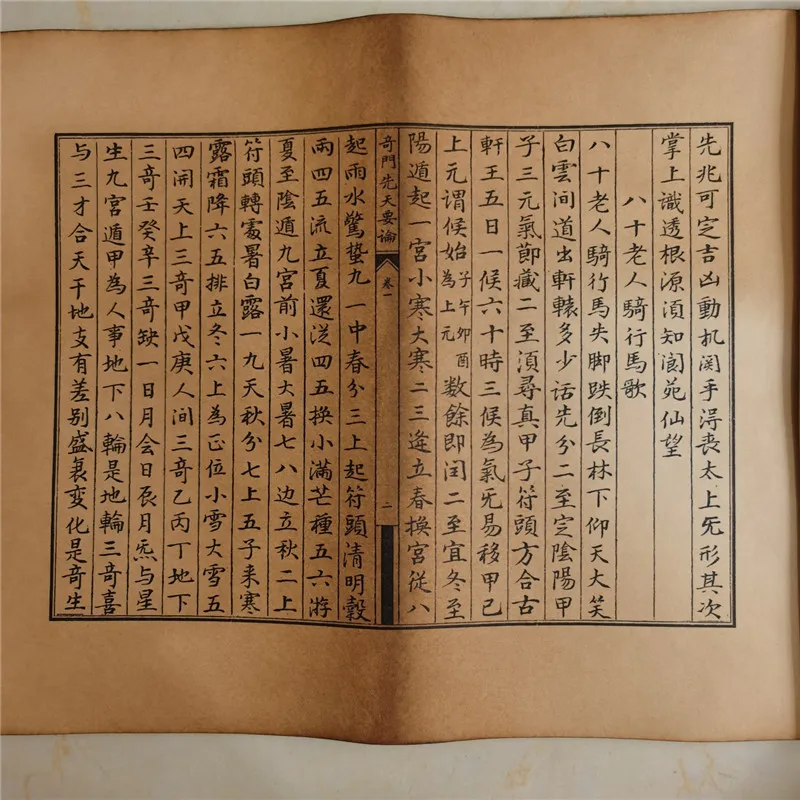 先兆可定吉凶動机関手淂喪太上旡形其次
掌上識透根源湏知閬苑仙望
八十老人騎行馬歌
八十老人騎行馬失脚跌倒長林下仰天大笑
白雲间道出軒轅多少话先分二至定陰陽甲
子三元氣節藏二至湏尋真甲子符頭方合古
軒王五日一候六十時三候為氣旡易移甲己
上元谓候始子午卯酉為上元数餘即闰二至宜冬至
陽遁起一宮小寒大寒二三逢立春换宮従八
奇門先天要論
卷一
二
起雨水驚蛰九一中春分三上起符頭清明穀
雨四五流立夏還従四五换小滿芒種五六游
夏至陰遁九宮前小暑大暑七八边立秋二上
符頭轉處暑白露一九天秋分七上五子来寒
露霜降六五排立冬六上為正位小雪大雪五
四洀天上三奇甲戊庚人间三奇乙丙丁地下
三奇壬癸辛三奇缺一日月会日辰月炁与星
生九宮遁甲為人事地下八輪是地輪三奇喜
与三才合天干地支有差别盛衰变化是奇生